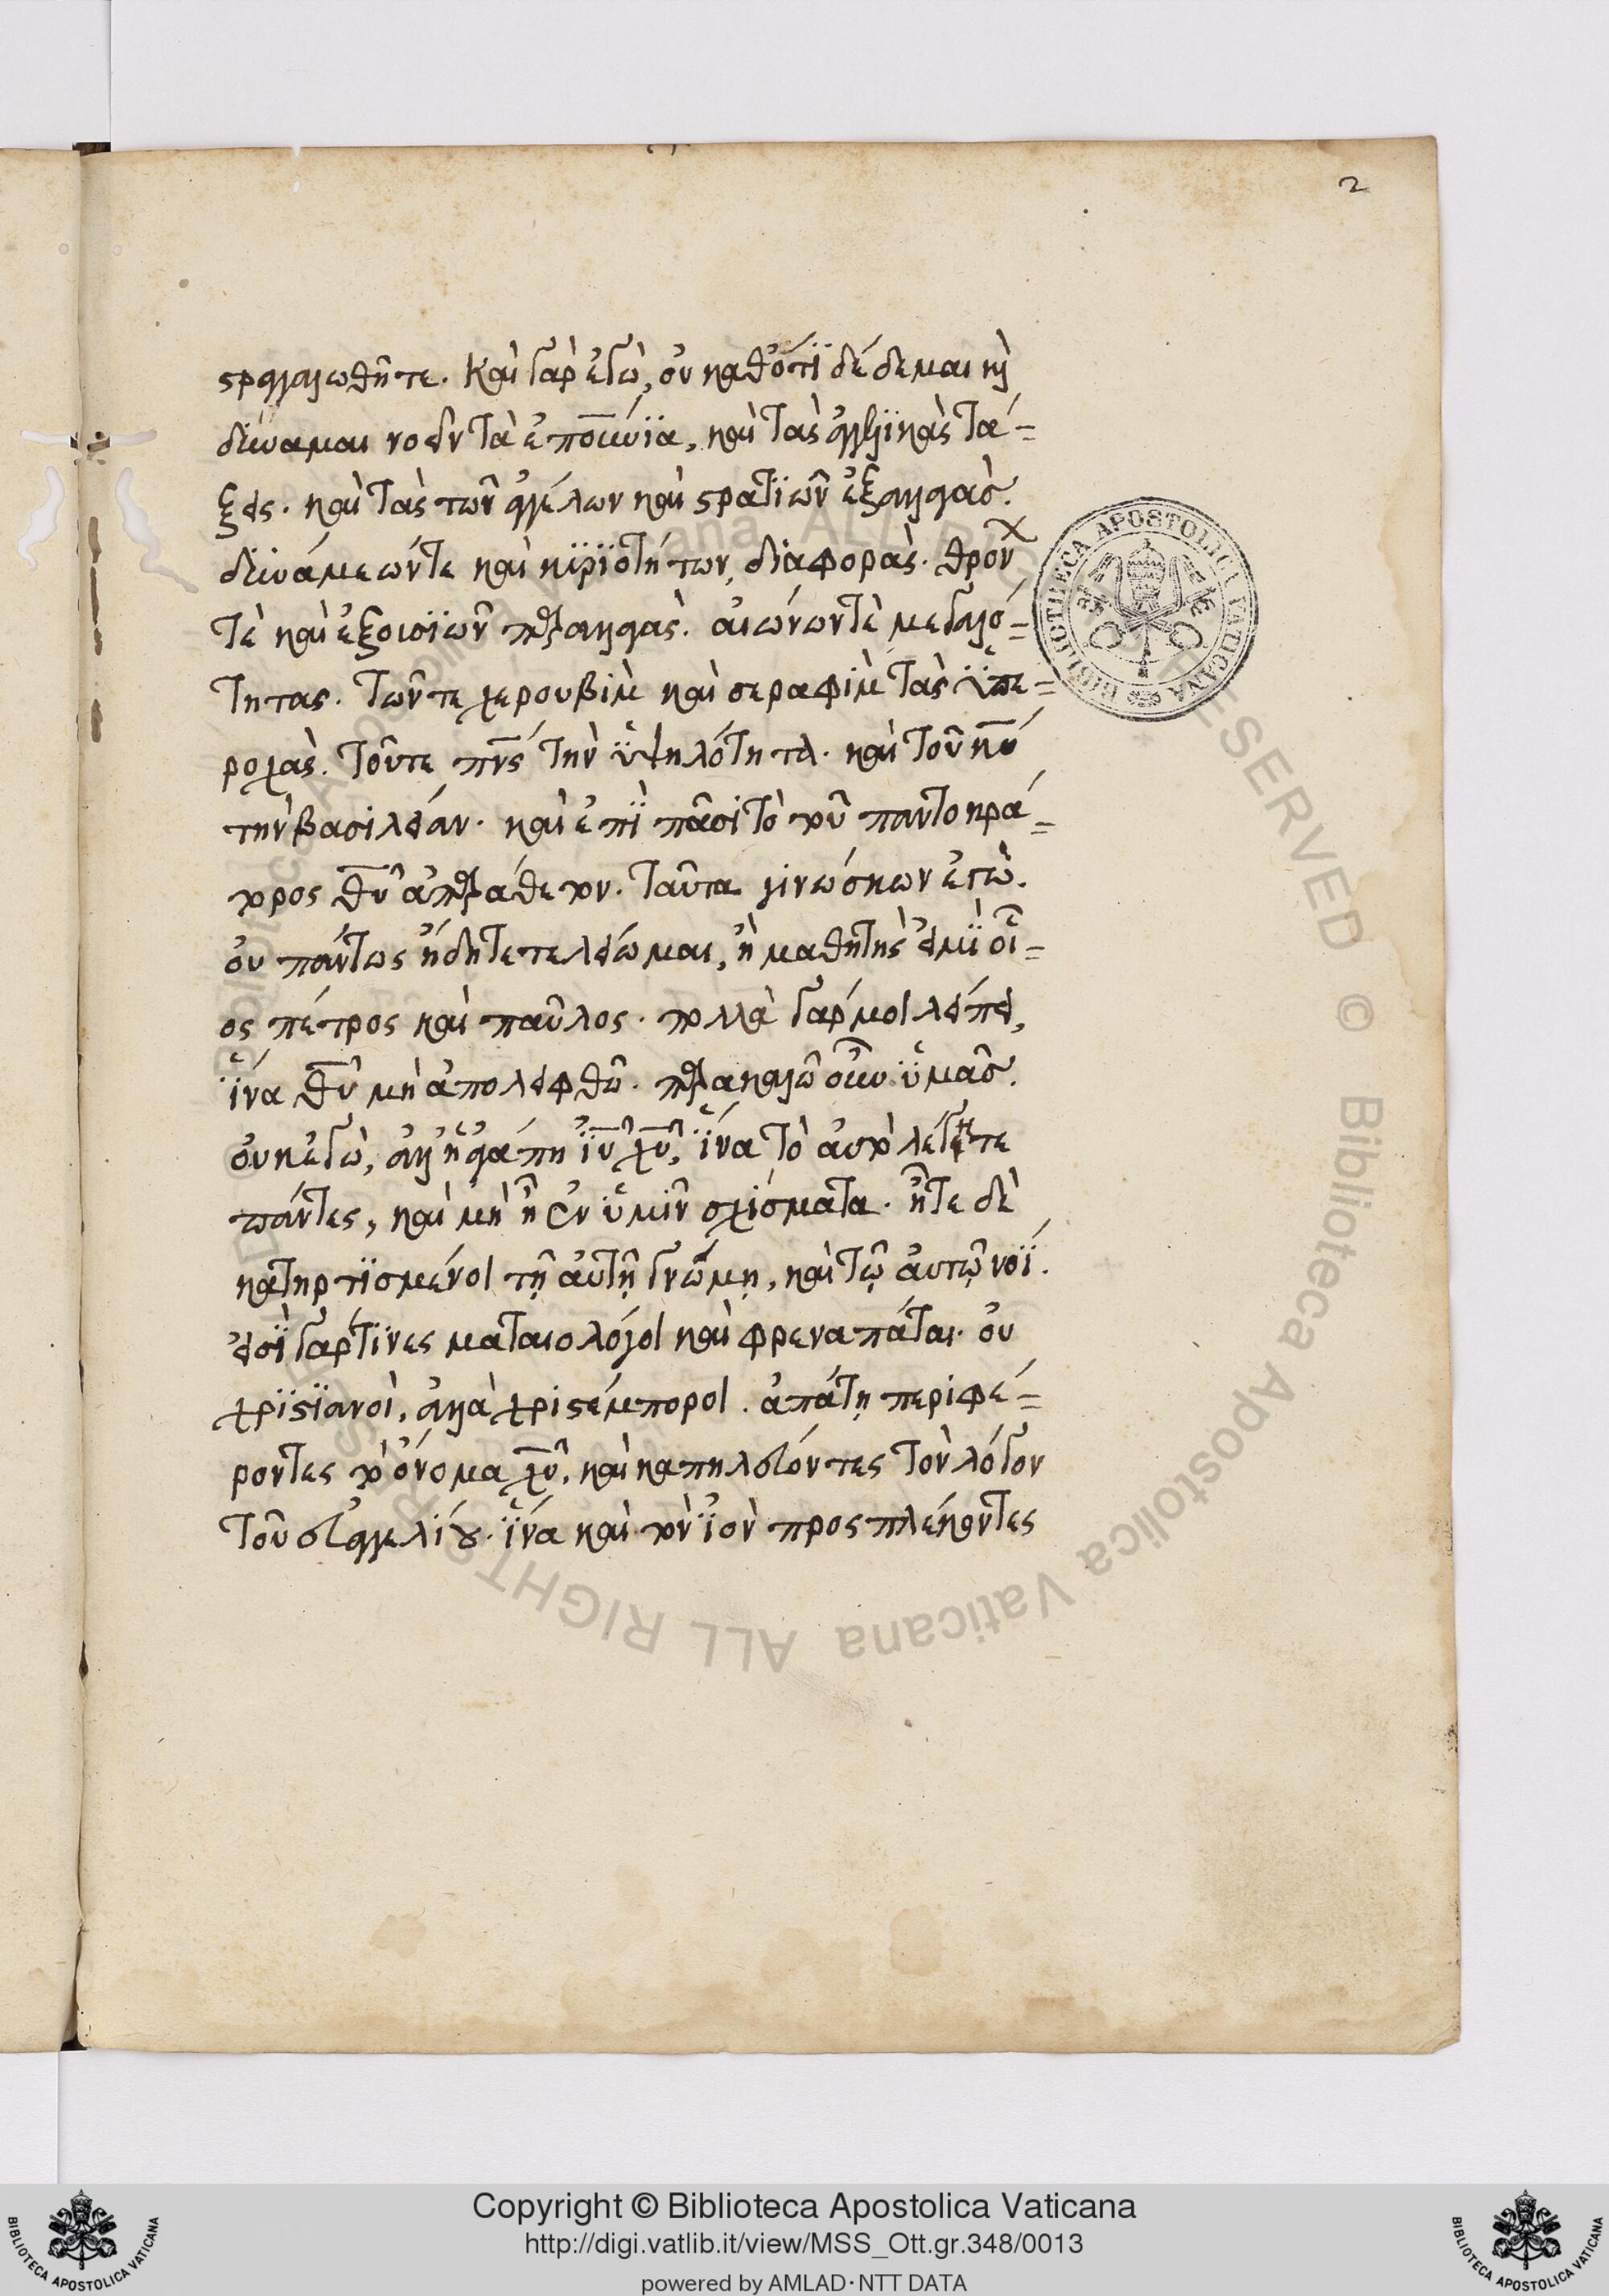 2
στραγγαλωθῆτε. Καὶ γὰρ ἐγὼ, οὐ καθότϊ δέδεμαι καὶ
δύναμαι νοεῖν τὰ ἐπουνϊα, καὶ τὰς ἀγγελϊκὰς τά=
ξεις. καὶ τὰς τῶν ἀγγέλων καὶ στρατϊῶν ἐξαλλαγάσ.
δϋνάμεών τε καὶ κϋρϊοτήτων, διαφοράς. θρόνων
τὲ καὶ ἐξουσϊῶν παραλλαγάς. αἰώνωντὲ μεγαλό=
τητας. τῶν τε χερουβὶμ καὶ σεραφὶμ τὰς ϋπε=
ροχάς. τοῦτε πνς τὴν ϋψηλότητα. καὶ τοῦ κυ
τὴν βασιλείαν. καὶ ἐπϊ πᾶσι τὸ τοῦ παντοκρά=
τορος θυ ἀπαράθετον. ταῦτα γινώσκων ἐγώ.
οὐ πάντως ἤδη τετελείωμαι, ἢ μαθητὴς εἰμϊ οἷ=
ος πέτρος καὶ παῦλος. πολλὰ γάρ μοι λείπει,
ἵνα θυ μὴ ἀπολειφθῶ. παρακαλῶ οὖν ϋμᾶσ.
οὐκ ἐγὼ, ἀλλ' ἡ ἀγάπη ϊυ χυ, ἵνα τὸ αὐτὸ λέγητε
πάντες, καὶ μὴ ᾖ ἐν ϋμῖν σχίσματα. ἦτε δὲ
κατηρτϊσμένοι τῇ αὐτῇ γνώμῃ, καὶ τῷ αὐτῷ νοΐ.
εἰσϊ γάρ τϊνες ματαιολόγοι καὶ φρεναπάται. οὐ
χρϊστϊανοὶ, ἀλλὰ χριστέμποροι. ἀπάτῃ περιφέ=
ροντες τὸ ὄνομα χυ, καὶ καπηλεύοντες τὸν λόγον
τοῦ εὐαγγελίου. ἵνα καὶ τὸν ϊὸν προσπλέκοντες
BIBLIOTHECA APOSTOLICA VATICANA
Biblioteca Apostolica Vaticana ALL RIGHTS RESERVED ©
Copyright © Biblioteca Apostolica Vaticana
http://digi.vatlib.it/view/MSS_Ott.gr.348/0013
powered by AMLAD·NTT DATA
BIBLIOTECA APOSTOLICA VATICANA
BIBLIOTECA APOSTOLICA VATICANA